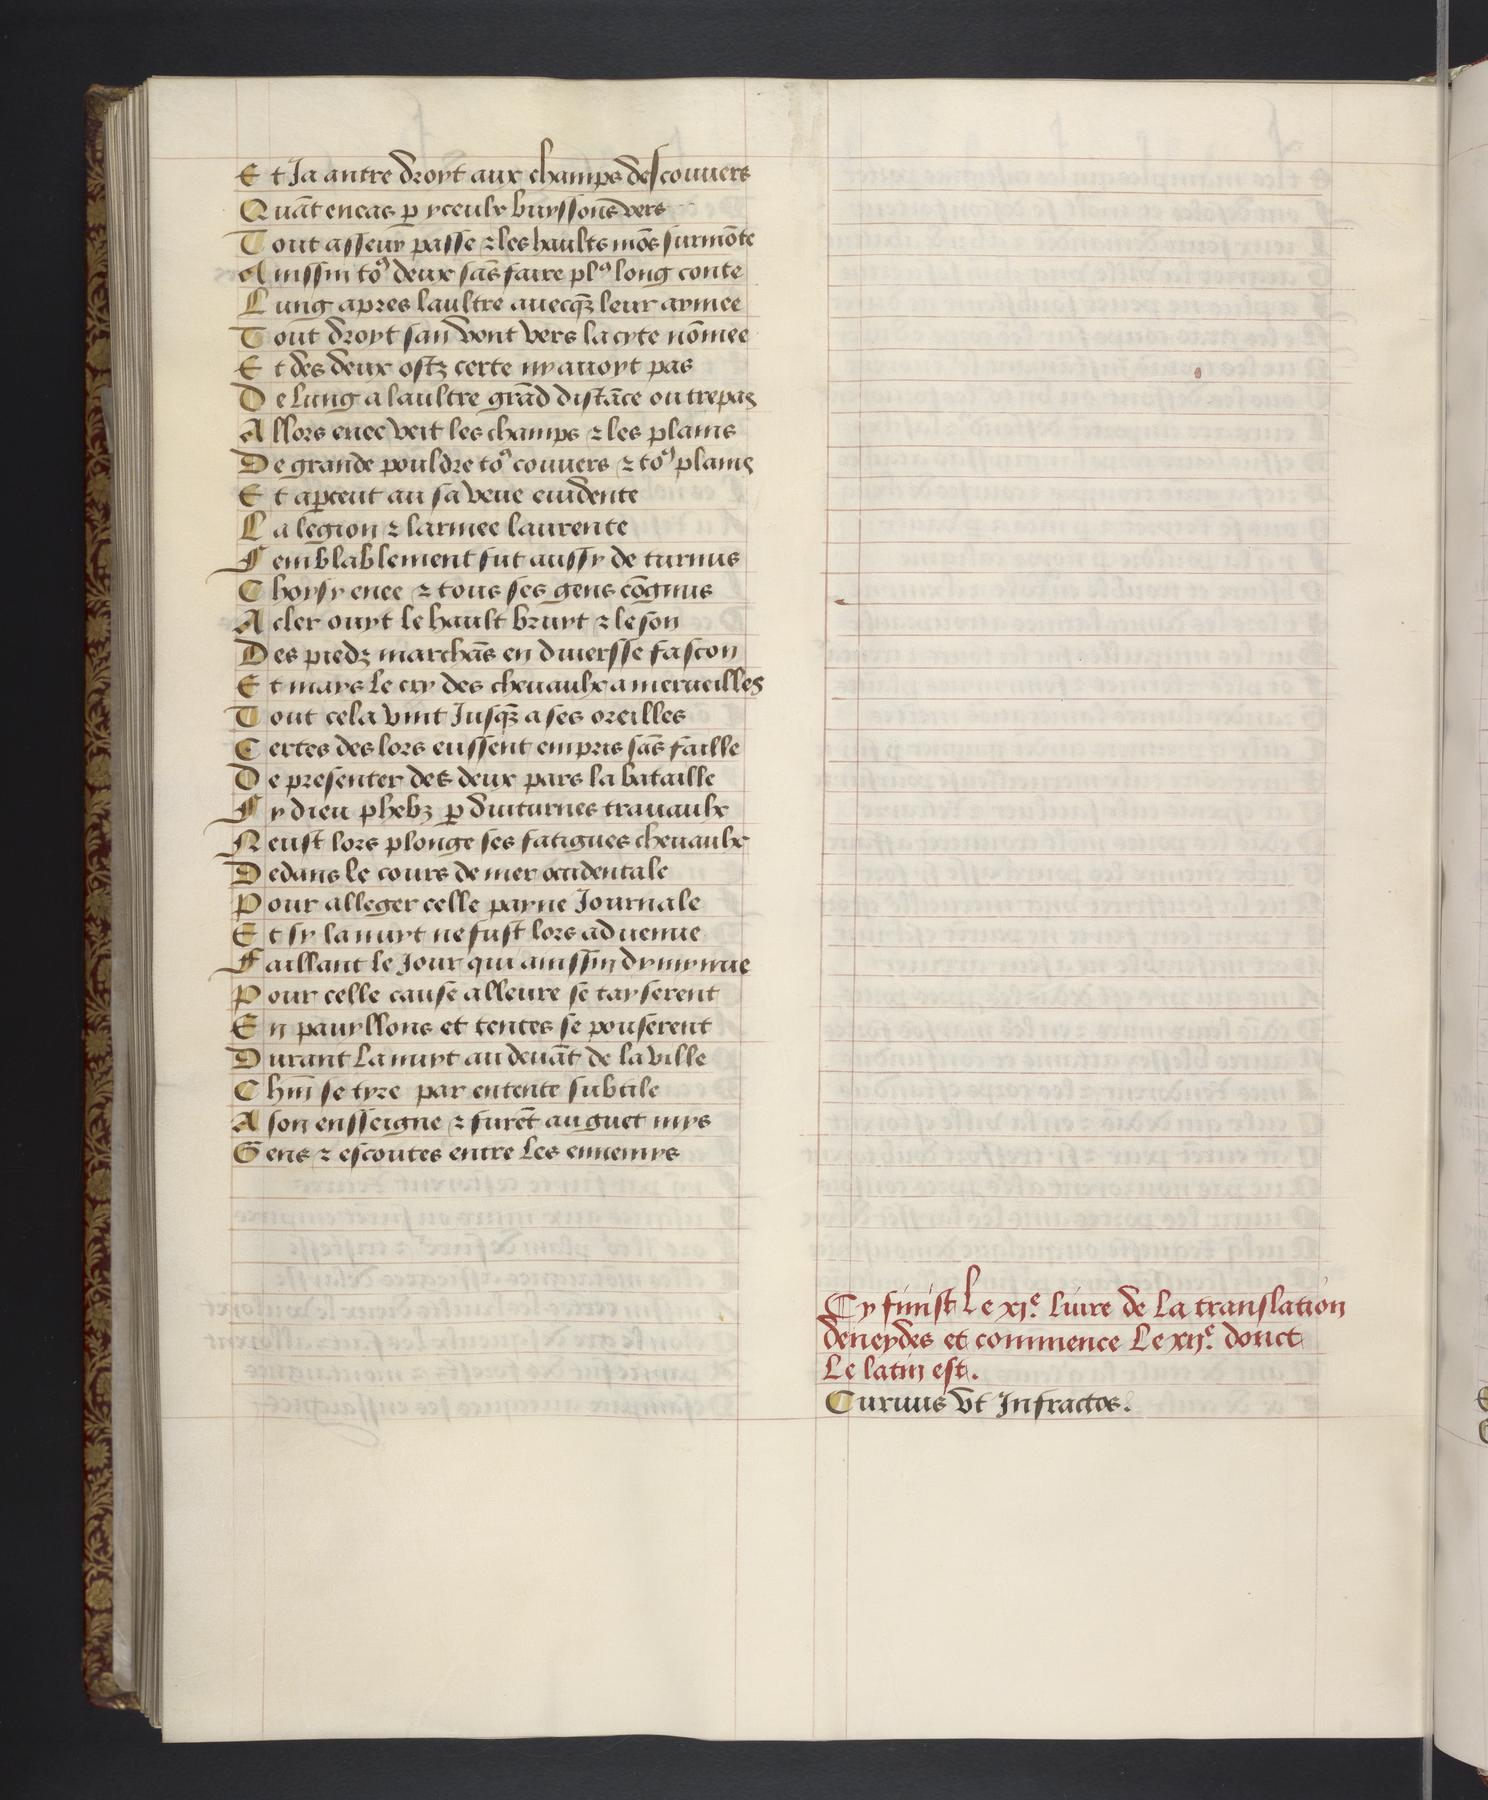 Et Ja antre droyt aux champs descouuers
Quāt eneas p̱ yceulx buyssons vers
Tout asseur passe ⁊ les haults mōs surmōte
Aussin toꝰ deux sās faire plꝰ long conte
Lung apres laultre auecqȝ leur armee
Tout droyt san vont vers la cyte nōmee
Et des deux ostz certe ny auoyt pas
De Lung a laultre grād distāce ou trepas
Allors enee veit les champs ⁊ les plains
De grande pouldre toꝰ couuers ⁊ toꝰ plains
Et ap̱ceut au sa veue euidente
La legion ⁊ larmee laurente
Semblablement fut aussy de turnus
Choysy enee ⁊ tous ses gens cōgnus
A cler ouyt le hault bruyt ⁊ le son
Des piedz marchās en diuersse fascon
Et mays Le cry des cheuaulx a merueilles
Tout cela vint Jusqȝ a ses oreilles
Certes des lors eussent empris sās faille
De presenter des deux pars la bataille
Sy dieu phebȝ p̱ diuturnes trauaulx
Neust lors plonge ses fatigues cheuaulx
Dedans le cours de mer occidentale
Pour alleger celle payne Journale
Et sy la nuyt ne fust lors aduenue
Faillant le Jour qui aussin dymynue
Pour celle cause alleure se tayserent
En pauyllons et tentes se pouserent
Durant La nuyt au deuāt de la ville
Chūn se tyre par entente subtile
A son ensseigne ⁊ furēt au guet mys
Gens ⁊ escoutes entre Les ennemys
Cy finist Le xjᵉ. Liure de La translation
deneydes et commence Le xijᵉ. donct
Le latin est.
Turnus vt Infractos.